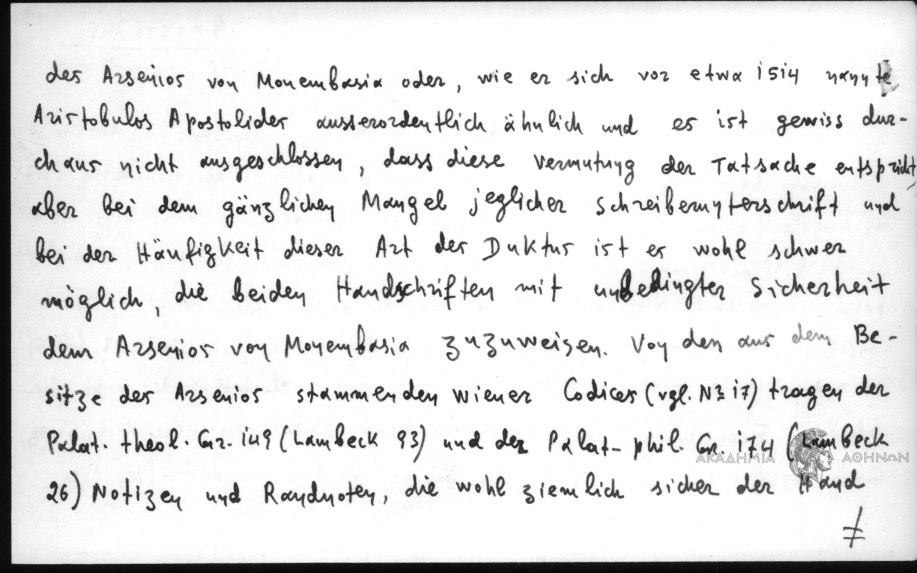 des Arsenios von Monembasia oder, wie er sich vor etwa 1514 nannte
Aristobulos Apostolides ausserordentlich ähnlich und es ist gewiss dur-
chaus nicht ausgeschlossen, dass diese Vermutung der Tatsache entspricht,
aber bei dem gänzlichen Mangel jeglicher Schreiberunterschrift und
bei der Häufigkeit dieser Art des Duktus ist es wohl schwer
möglich, die beiden Handschriften mit unbedingter Sicherheit
dem Arsenios von Monembasia zuzuweisen. Von den aus dem Be-
sitze des Arsenios stammenden Wiener Codices (vgl. No 17) tragen der
Palat. theol. Gr. 149 (Lambeck 93) und der Palat. phil. Gr. 174 (Lambeck
ΑΚΑΔΗΜΙΑ ΑΘΗΝΩΝ
26) Notizen und Randnoten, die wohl ziemlich sicher der Hand